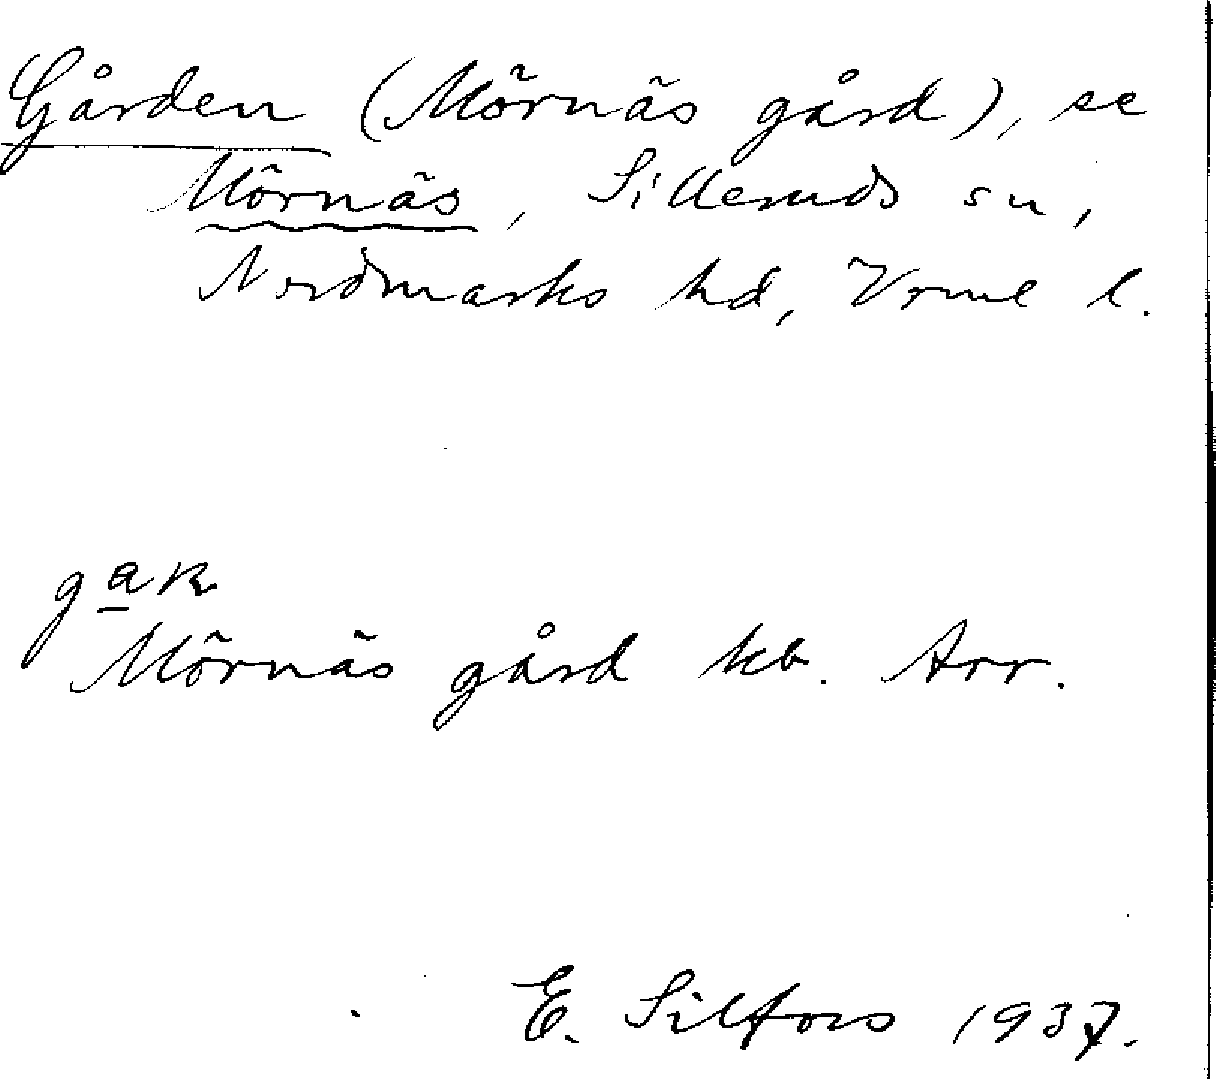 Gården (Mörnäs gård), se
Mörnäs, Silleruds sn,
Nordmarks hd, Vrml l.
Mörnäs gård kb. Arr.
E. Silfors 1937.